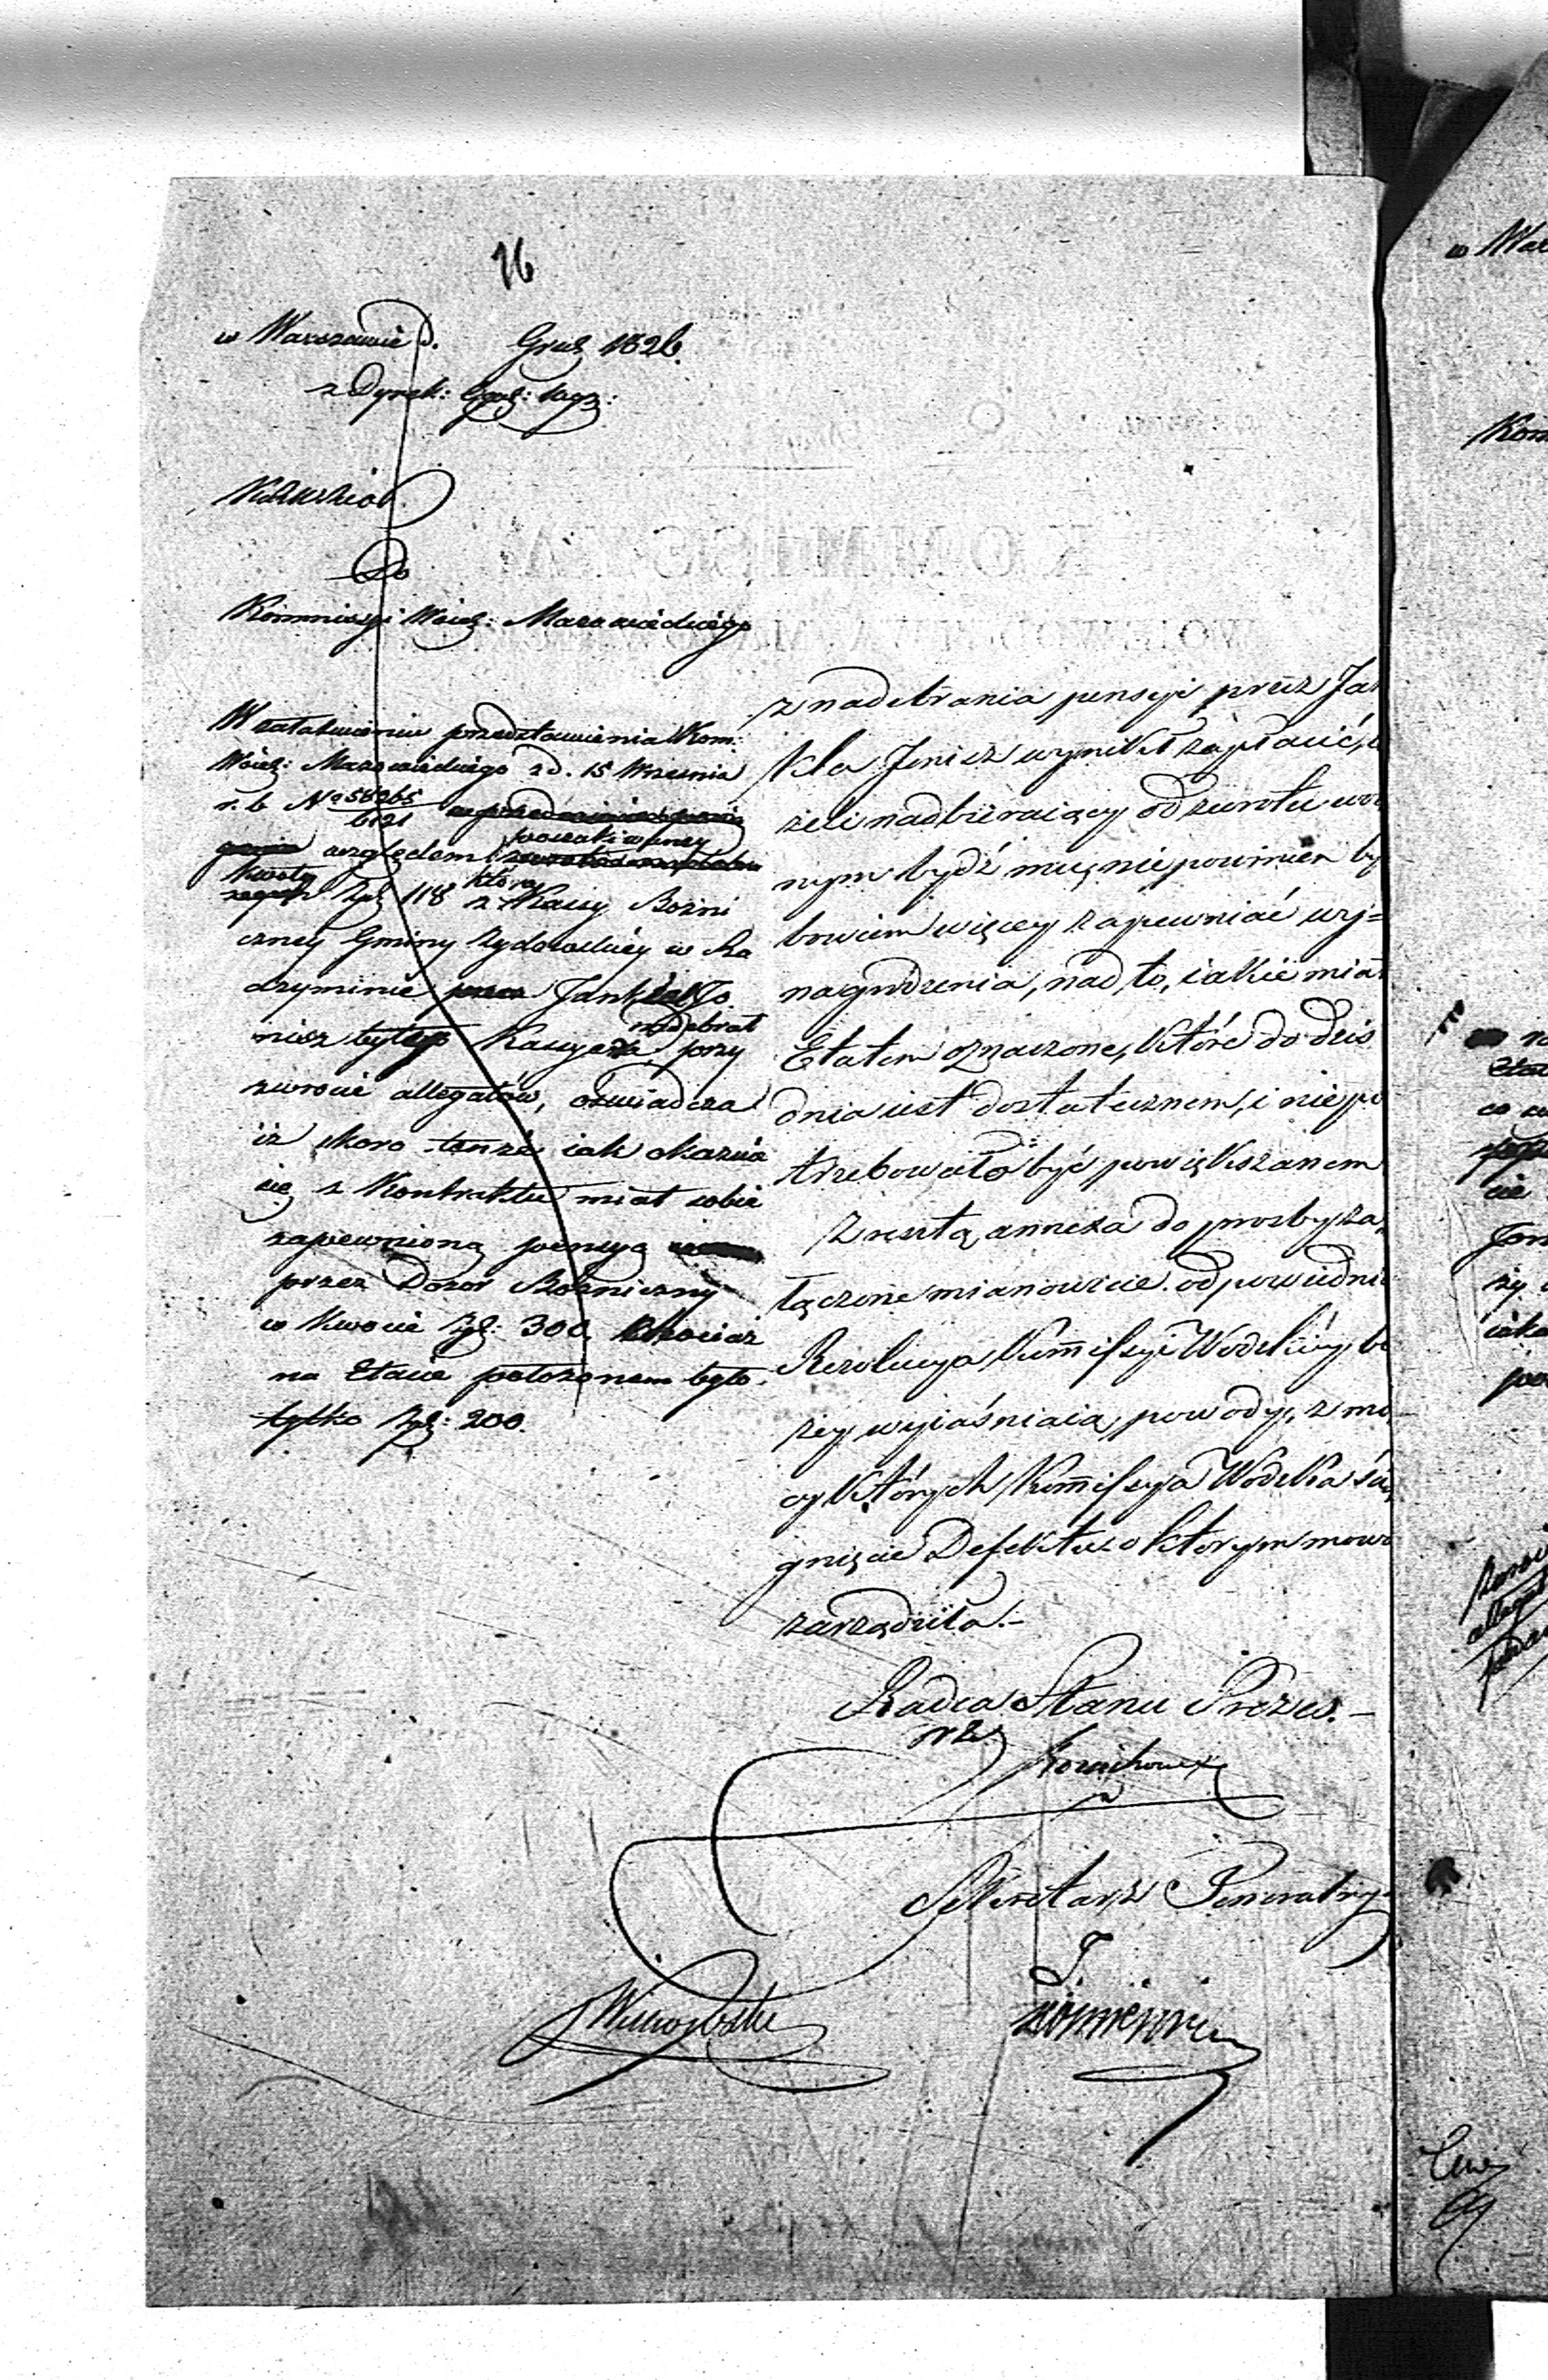 16
w Warszawie d. Grud 1826.
z Dyrek:
Do
Kommissyi Woiew: Mazowieckiego
W załatwieniu przedstawienia Kom:
Woiew: Mazowieckiego z d. 15 Wrzesnia
r. b No 58265
6121
względem
kwoty Zpł 118 którą z Kassy Bożni
czney Gminy Żydowskiey w Ra
dzyminie Jankiel Jo
nisz były Kassyer nadebrał przy
zwrocie allegatów, oswiadcza
iż skoro tenże iak okazuie
się z Kontraktu miał sobie
zapewnioną pensyą
przez Dozor Bożniczny
w kwocie Zpł: 300, chociaż
na Etacie położonem było
tylko Zpł: 200.
z nadebrania pensyi przez Jan
kla Jonisz wynikł zapłacić,
żeli nadbieraiący od zwrotu wol
nym bydź musi nie powinien by
bowiem więcey zapewniać wy=
nagrodzenia, nad to, iakie miał
Etatem oznaczone, które do dziś
dnia iest dostatecznem, i nie po
trzebowało być powiększanem
Zresztą annexa do prosby za
łączone mianowicie odpowiednie
Rezolucya Kommissyi Wodzkiey
żey wyiaśniaią powody, z mo
cy których Kommissya Wodzka ścią
gnięcie Defektu o którym mowa
zarządziła.-
Radca Stanu Prezes.-
Sekretarz Generalny